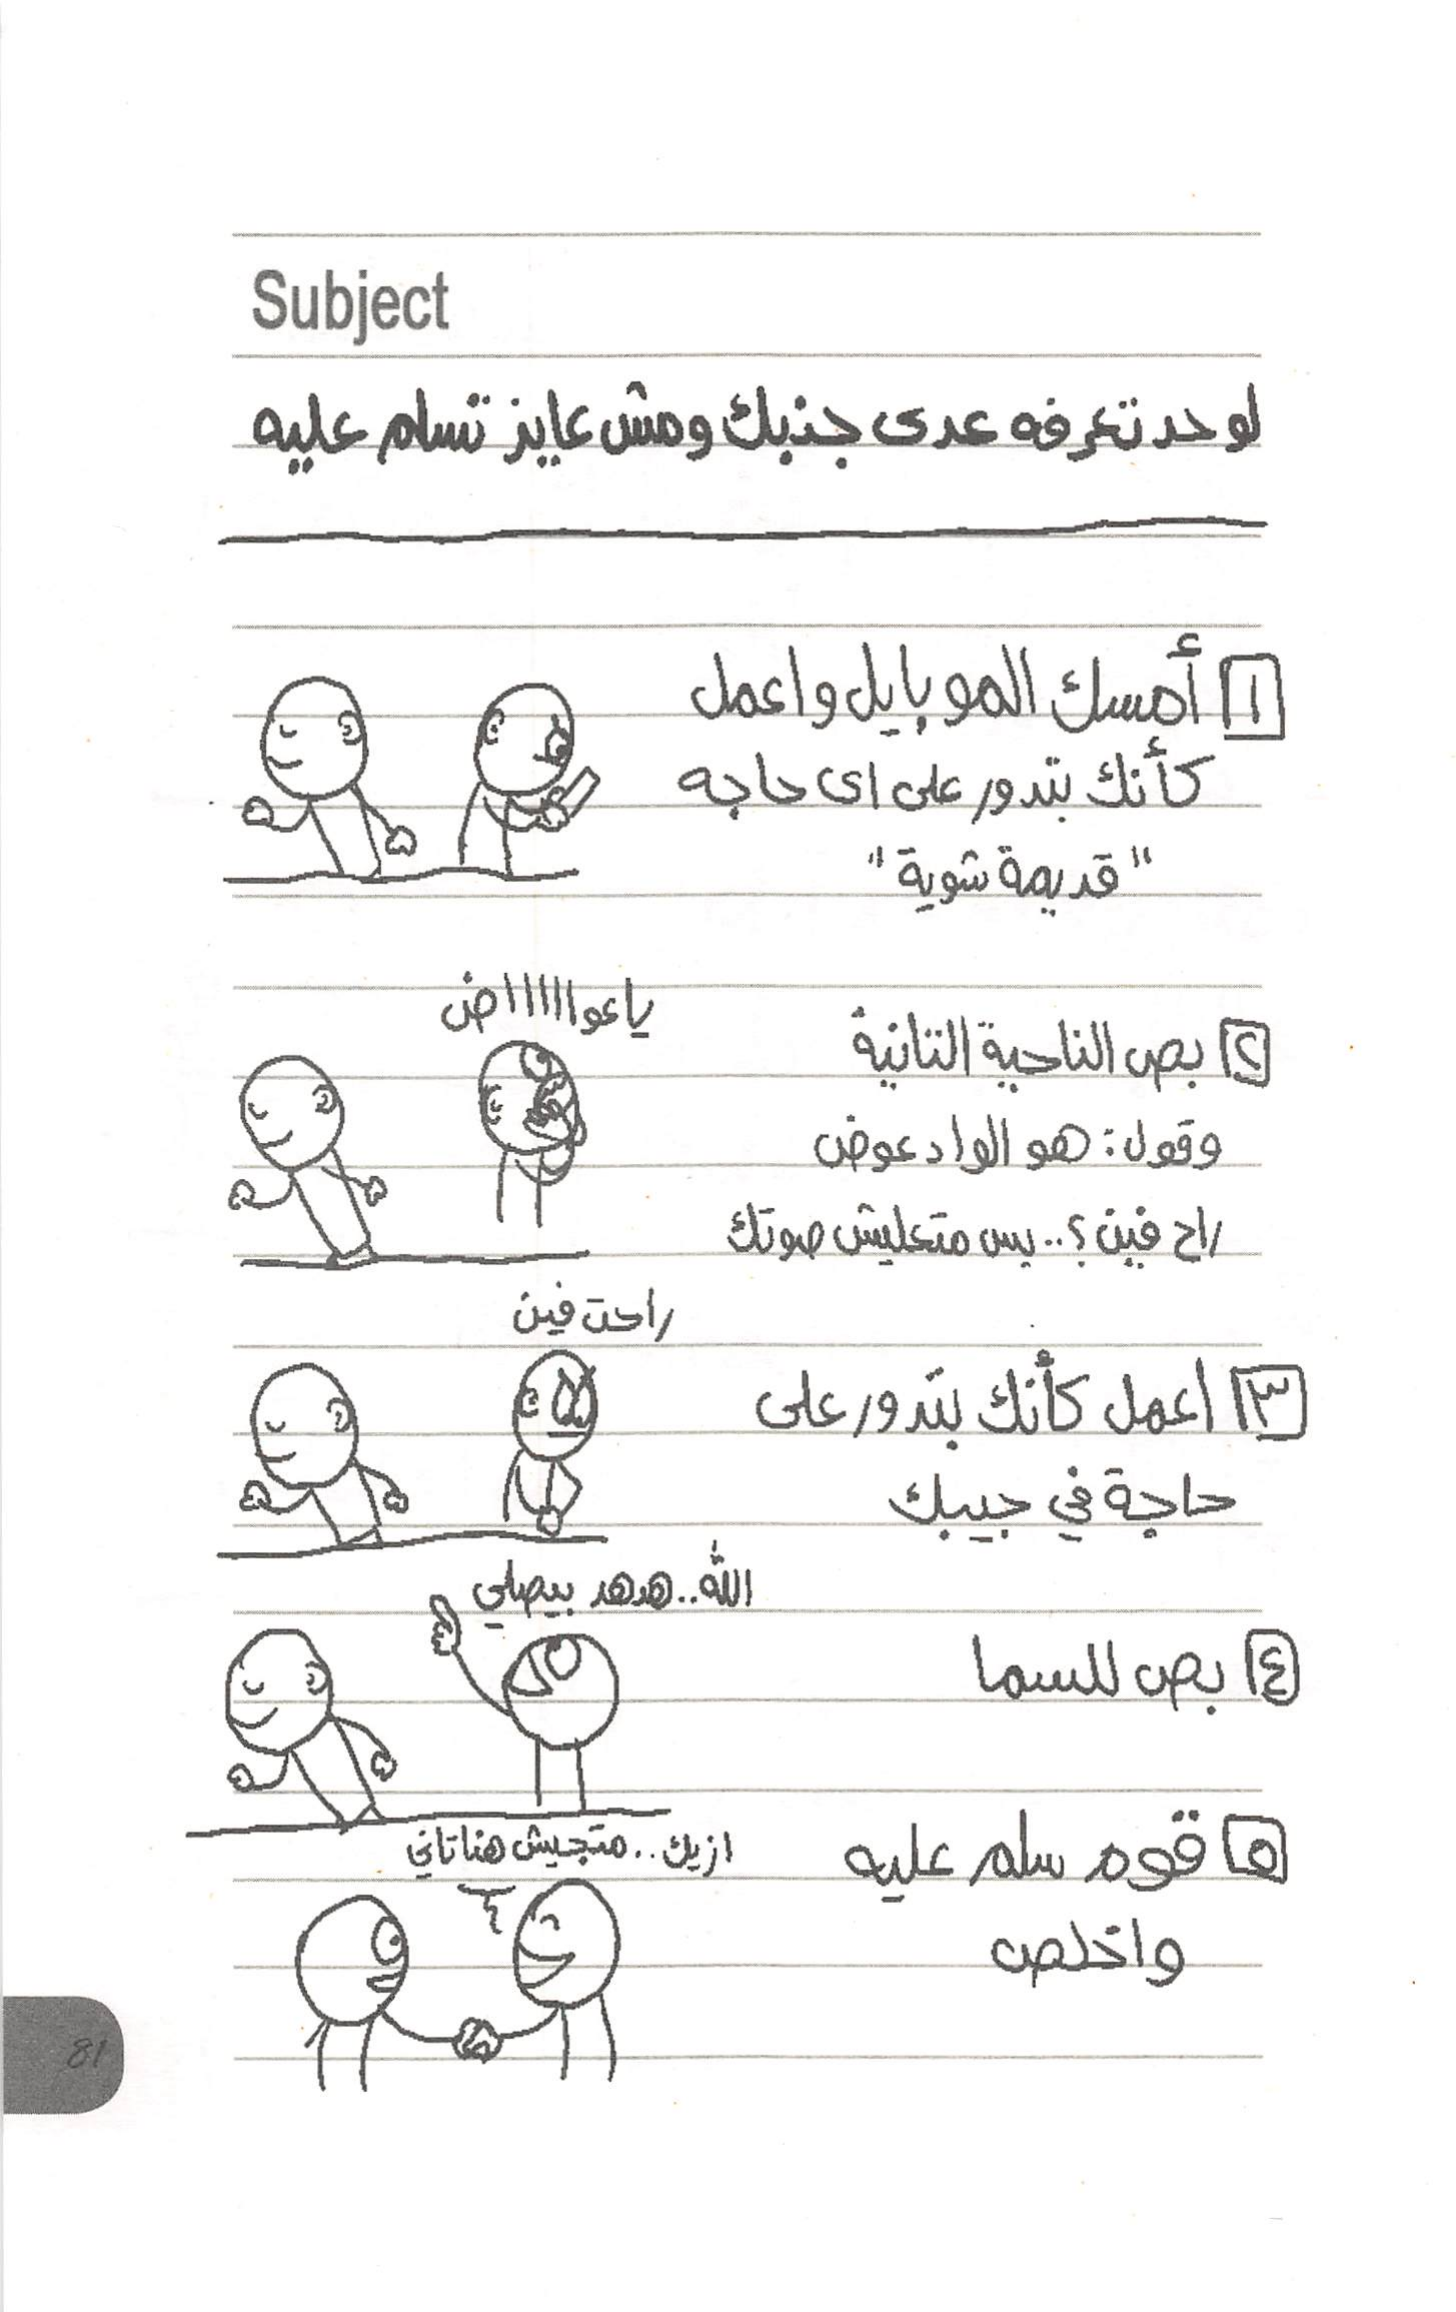 Subject
لو حد تعرفه عدى جنبك ومش عايز تسلم عليه
١ أمسك الموبايل واعمل
كأنك بتدور على اى حاجه
"قديمة شوية"
ياعوااااااض
٢ بص الناحية التانية
وقول: هو الواد عوض
راح فين؟.. بس متعليش صوتك
راحت فين
٣ اعمل كأنك بتدور على
حاجة في جيبك
الله.. هدهد بيصلي
٤ بص للسما
ازيك.. متجيش هنا تاني
٥ قوم سلم عليه
واخلص
81